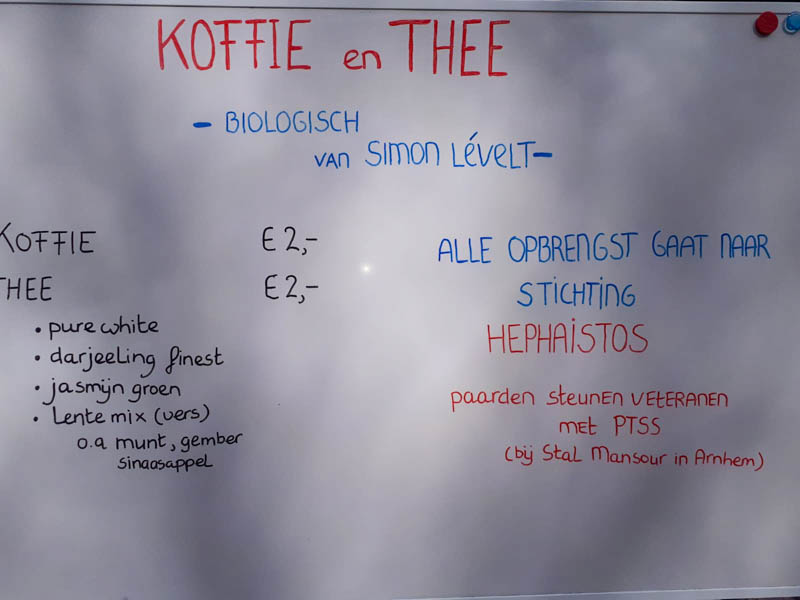 KOFFIE en THEE
- BIOLOGISCH
van SIMON LÉVELT-
KOFFIE € 2,-
THEE € 2,-
• pure white
• darjeeling finest
• jasmijn groen
• Lente mix (vers)
o.a munt, gember
sinaasappel
ALLE OPBRENGST GAAT NAAR
STICHTING
HEPHAISTOS
paarden steunen veteranen
met PTSS
(bij Stal Mansour in Arnhem)